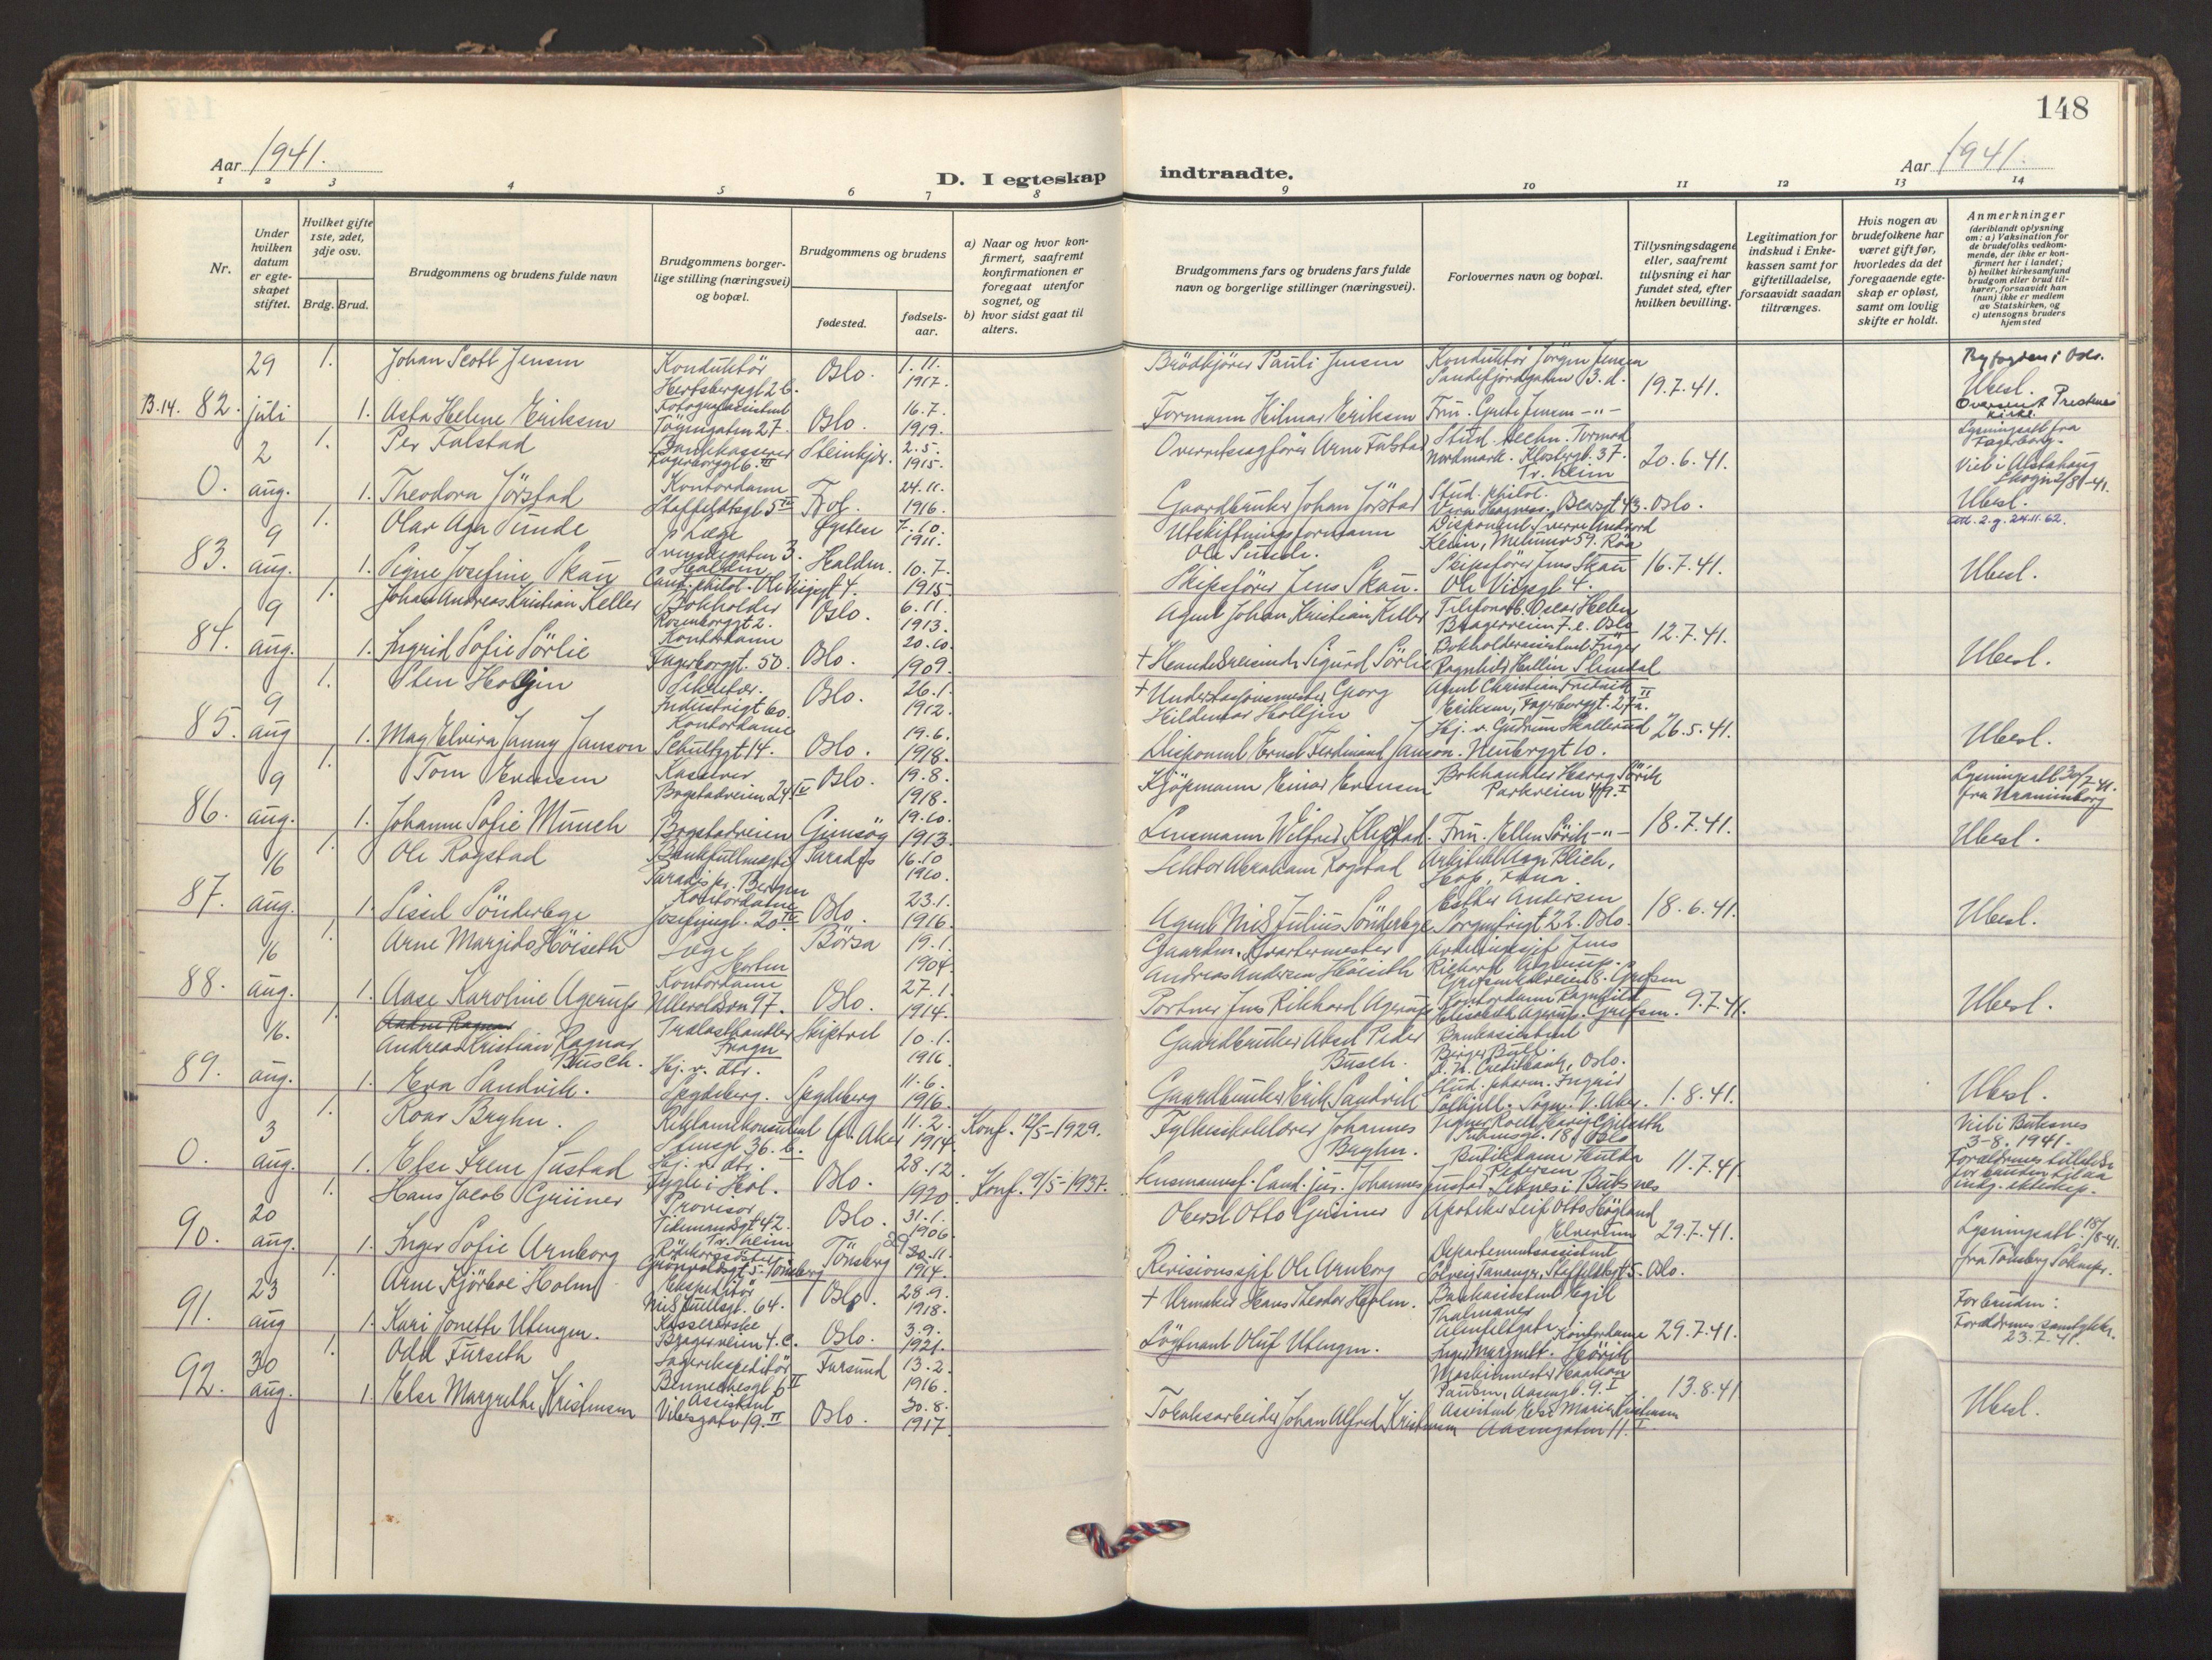 148
Aar 1941.
D. I egteskap indtraadte.
Aar 1941.
1 2 3 4 5 6 7 8 9 10 11 12 13 14
Nr.
Under hvilken datum er egte-skapet stiftet.
Hvilket gifte 1ste, 2det, 3dje osv.
Brdg. Brud.
Brudgommens og brudens fulde navn
Brudgommens borger-lige stilling (næringsvei) og bopæl.
Brudgommens og brudens
fødested.
fødsels-aar.
a) Naar og hvor kon-firmert, saafremt konfirmationen er foregaat utenfor sognet, og
b) hvor sidst gaat til alters.
Brudgommens fars og brudens fars fulde navn og borgerlige stillinger (næringsvei).
Forlovernes navn og bopæl.
Tillysningsdagene eller, saafremt tillysning ei har fundet sted, efter hvilken bevilling.
Legitimation for indskud i Enke-kassen samt for giftetilladelse, forsaavidt saadan tiltrænges.
Hvis nogen av brudefolkene har været gift før, hvorledes da det foregaaende egte-skap er opløst, samt om lovlig skifte er holdt.
Anmerkninger
(deriblandt oplysning om: a) Vaksination for de brudefolks vedkom-mende, der ikke er kon-firmert her i landet; b) hvilket kirkesamfund brudgom eller brud til-hører, forsaavidt han (hun) ikke er medlem av Statskirken, og c) utensogns bruders hjemsted
B.14. 82. 29 juli
1. Johan Scott Jensen Konduktör Oslo. 1.11. 1917. Brödkjörer Pauli Jensen Konduktör Jörgen Jensen Sandefjordgaten 3.d. 19.7.41. Byfogden i Oslo. Ubesl.
1. Asta Helene Eriksen Tøyengaten 27. Oslo. 16.7. 1919. Formann Hilmar Eriksen Fru Grete Jensen -"- Kirke.
0. 2 aug.
1. Per Falstad Fagerborggt 6. III Steinkjer. 2.5. 1915. Overrettssagfører Arne Falstad Stud. techn. Tormod Nordmark. Klostergt. 37. Tr.heim 20.6.41. Lysningsatt fra Fagerborg. Viet i Alstahaug Skogn 2/8-41.
1. Theodora Jörstad Kontordame Staffeldtsgt 5 IV 24.11. 1916. Gaardbruker Johan Jörstad Stud. philol. 43. Oslo. Ubesl. Att. 2. g. 24.11.62.
83. 9 aug.
1. Olav Aga Sunde Læge Halden 7.10. 1911. Utskiftningsformann Ole Sunde. Disponent Sverre 59. Röa 16.7.41. Ubesl.
1. Signe Josefine Skau Cand. philol. Ole Vigsgt 4. Halden. 10.7. 1915. Skipsfører Jens Skau. Skipsfører Jens Skau Ole Vigsgt 4.
84. 9 aug.
1. Johan Andreas Kristian Keller Bokholder Rosenborggt 2. Oslo. 6.11. 1913. Agent Johan Kristian Keller Oscar Helen Bragerveien 7.e. Oslo 12.7.41. Ubesl.
1. Ingrid Sofie Sörlie Kontordame Fagerborggt. 50. Oslo. 20.10. 1909. + Handelsreisende Sigurd Sörlie Ragnhild Hallin Slemdal
85. 9 aug
1. Sten Holgjin Sekretær. Industrigt 60. Oslo. 26.1. 1912. + Understasjonsmester Georg Hildemar Holljin Agent Christian Fredrik Eriksen, Fagerborggt. 27a. II 26.5.41. Ubesl.
1. May Elvira Jenny Janson Kontordame Schultzgt 14. Oslo. 19.6. 1918. Disponent Ernst Ferdinand Janson. Hj. v. Gudrun Skallerud Neuberggt 10.
86. 9 aug.
1. Tom Evensen Kasserer Bogstadveien 24 IV Oslo. 19.8. 1918. Kjöpmann Einar Evensen Bokhandler Harry Sörik Parkveien 41. I 18.7.41. Lysningsatt 30/7-41. fra Uranienborg Ubesl.
1. Johanne Sofie Munch Bogstadveien Gimsöy 19.10. 1913. Lensmann Wilfred Fru. Ellen Sörik -"-
87. 16 aug.
1. Ole Rogstad Bankfullmegtig Paradis pr. Bergen Paradis 16.10 1910. Lektor Abraham Rogstad Arkitekt Aage Blich, Hop, Fana. 18.6.41. Ubesl.
1. Sissel Sönderbye Kontordame Josefinegt. 20 IV Oslo. 23.1. 1916. Agent Nils Julius Sönderbye Esther Andersen Sorgenfrigt 22. Oslo.
88. 16 aug.
1. Arne Margido Höiseth Læge Horten Börsa 19.1. 1904. Gaardm. Kvartermester Andreas Andersen Höiseth Avdelingssjef Jens Richard Agerup. Grefsen 9.7.41. Ubesl.
1. Aase Karoline Agerup Kontordame Ullevoldsvn 97. Oslo. 27.1. 1914. Portner Jens Rikhard Agerup Kontordame Ragnhild Elisabeth Agerup. Grefsen.
89. 16. aug.
1. Andreas Kristian Ragnar Busch. Trelasthandler Skiptvet 10.1. 1916 Gaardbruker Absel Peder Busch. Bankassistent Birger Creditbank, Oslo. 1.8.41. Ubesl.
1. Eva Sandvik. Hj. v. dtr. Spydeberg. Spydeberg 11.6. 1916. Gaardbruker Erik Sandvik Stud. pharm. Ingrid Solhjell. Sogn. V. Aker.
0. 3 aug.
1. Roar Bryhn. Reklamekonsulent 36. b. V. Aker 11.2. 1914. Konf. 12/5-1929. Fylkesskolelærer Johannes Bryhn. 18. Oslo 11.7.41. Viet i Buksnes 3-8.1941. Foreldrenes tillatelse for bruden til aa indg. ekteskap.
1. Else Irene Justad Hj. v. dtr. Oslo. 28.12 1920. Konf. 9/5-1937. Lensmannsf. Cand. jur. Johannes Justad Butikkdame Hulda Pedersen Leknes i Buksnes
90. 20 aug.
1. Hans Jacob Grüner Provisor Tidemandsgt 42. Oslo. 31.1. 1906. Oberst Otto Grüner Apoteker Leif Otto Høgland Elverum 29.7.41. Lysningsatt. 18/8-41. fra Tønsberg Soknepr.
1. Inger Sofie Arnborg 5. Tönsberg Tönsberg 30.11. 1914. Revisionssjef Ole Arnborg Departementsassistent Solveig Tananger, Staffeldtsgt 5. Oslo.
91. 23 aug
1. Arne Kjörboe Holm Ekspeditör Nils Juelsgt. 64. Oslo. 28.9. 1918. + Urmaker Hans Theodor Holm. Bankassistent Egil Thalmaner 29.7.41. For bruden: Foreldrenes samtykke. 23.7.41.
1. Kari Jonette Utengen. Kassererske Bragerveien 4.C. Oslo. 3.9. 1921. Löytnant Oluf Utengen. Kontordame Inger Margrete Hörik
92. 30 aug.
1. Odd Furseth Lagerekspeditör Bennechesgt 6 II Farsund 13.2. 1916. Maskinmester Haakon Paulsen, Aasengt. 9. I 13.8.41. Ubesl.
1. Else Margrethe Kristensen Assistent Vibesgate 19. II Oslo. 30.8. 1917. Tobaksarbeider Johan Alfred Kristensen Assistent Else Marie Kristensen Aasengaten 11. I.